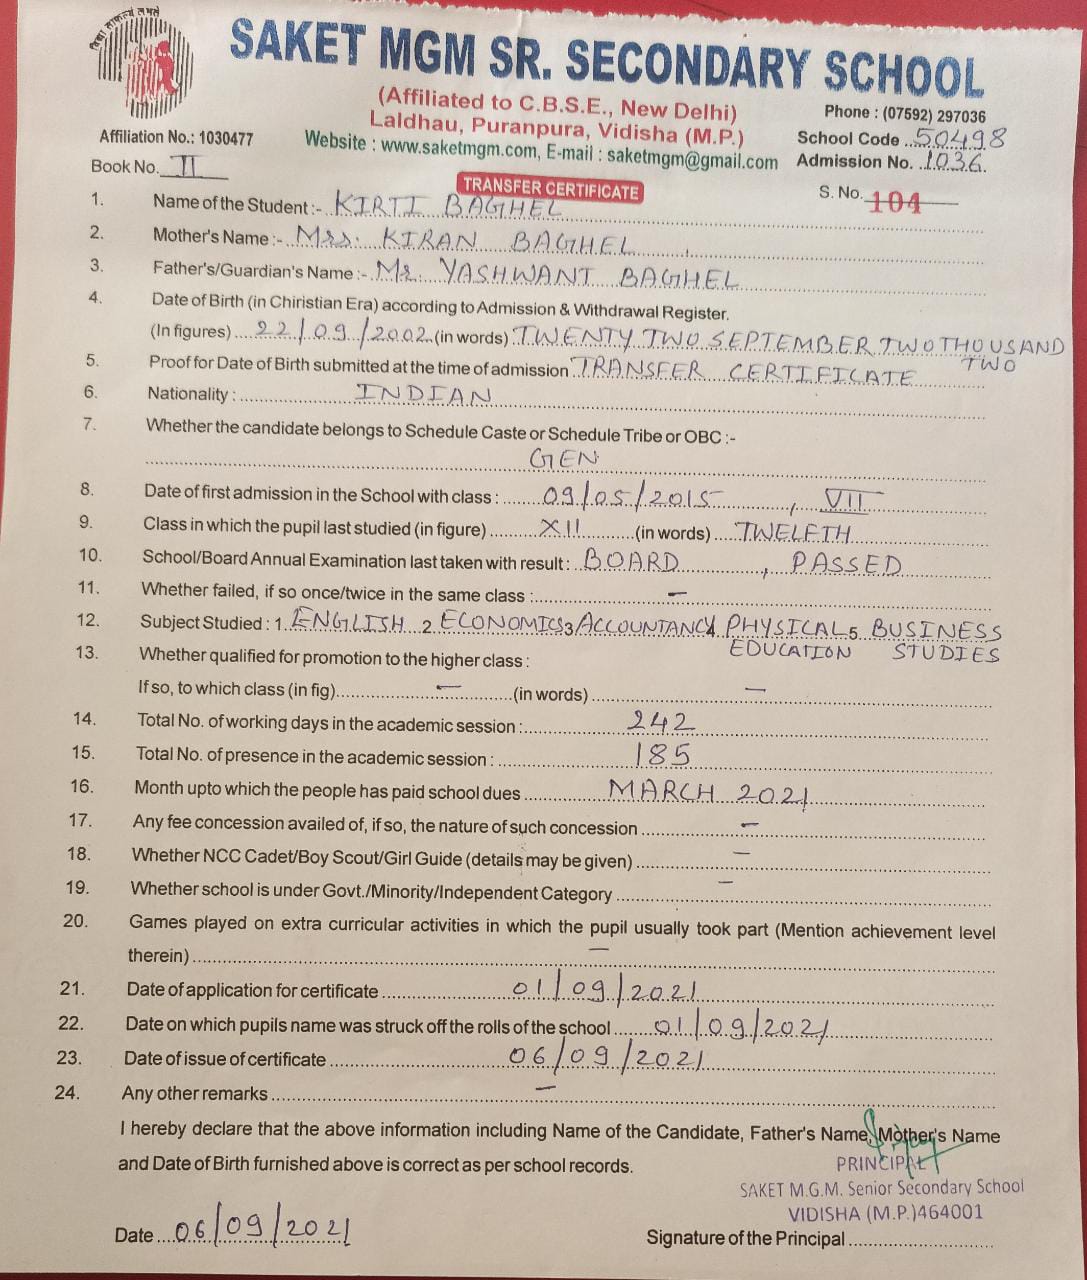 विद्या साकल्य लभते
SAKET MGM SR. SECONDARY SCHOOL
(Affiliated to C.B.S.E., New Delhi)
Phone : (07592) 297036
Laldhau, Puranpura, Vidisha (M.P.)
Affiliation No.: 1030477
School Code ..50498
Website : www.saketmgm.com, E-mail : saketmgm@gmail.com
Admission No. .1036.
Book No. II
TRANSFER CERTIFICATE
S. No. 104
1. Name of the Student :- KIRTI BAGHEL
2. Mother's Name :- Mrs. KIRAN BAGHEL
3. Father's/Guardian's Name :- Mr. YASHWANT BAGHEL
4. Date of Birth (in Chiristian Era) according to Admission & Withdrawal Register.
(In figures) 22/09/2002 (in words) TWENTY TWO SEPTEMBER TWO THOUSAND
TWO
5. Proof for Date of Birth submitted at the time of admission TRANSFER CERTIFICATE
6. Nationality : INDIAN
7. Whether the candidate belongs to Schedule Caste or Schedule Tribe or OBC :-
GEN
8. Date of first admission in the School with class : 09/05/2015 , VII
9. Class in which the pupil last studied (in figure) XII (in words) TWELFTH
10. School/Board Annual Examination last taken with result : BOARD , PASSED
11. Whether failed, if so once/twice in the same class : –
12. Subject Studied : 1. ENGLISH 2 ECONOMICS 3 ACCOUNTANCY 4 PHYSICAL 5 BUSINESS
EDUCATION STUDIES
13. Whether qualified for promotion to the higher class :
If so, to which class (in fig) – (in words) –
14. Total No. of working days in the academic session : 242
15. Total No. of presence in the academic session : 185
16. Month upto which the people has paid school dues MARCH 2021
17. Any fee concession availed of, if so, the nature of such concession –
18. Whether NCC Cadet/Boy Scout/Girl Guide (details may be given) –
19. Whether school is under Govt./Minority/Independent Category –
20. Games played on extra curricular activities in which the pupil usually took part (Mention achievement level
therein) –
21. Date of application for certificate 01/09/2021
22. Date on which pupils name was struck off the rolls of the school 01/09/2021
23. Date of issue of certificate 06/09/2021
24. Any other remarks –
I hereby declare that the above information including Name of the Candidate, Father's Name, Mother's Name
and Date of Birth furnished above is correct as per school records.
PRINCIPAL
SAKET M.G.M. Senior Secondary School
VIDISHA (M.P.)464001
Date 06/09/2021
Signature of the Principal